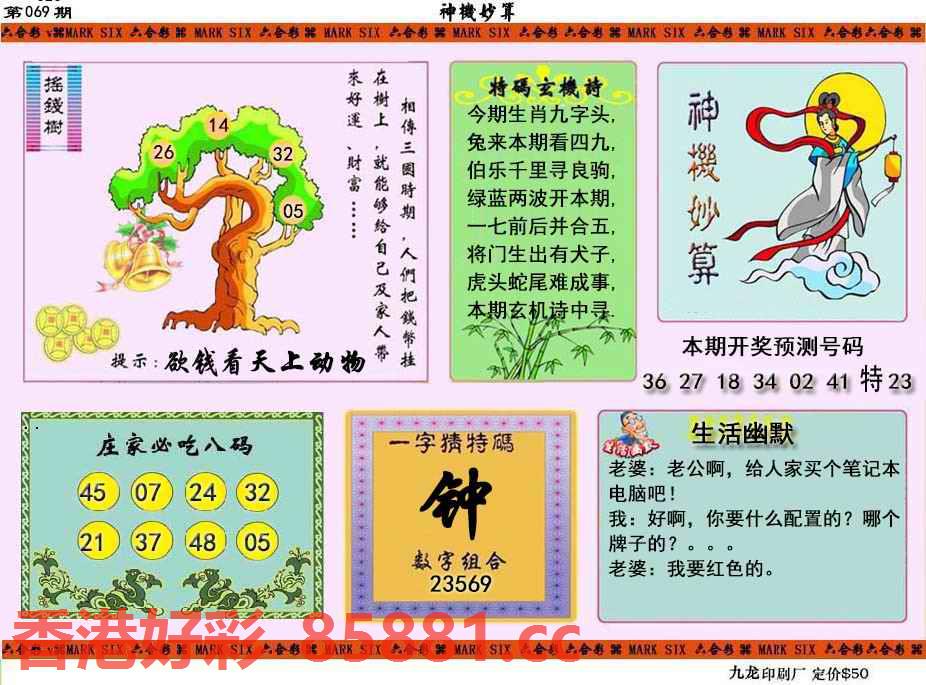 第069期
神機妙算
六合彩 MARK SIX 六合彩 MARK SIX 六合彩 MARK SIX 六合彩 MARK SIX 六合彩 MARK SIX 六合彩 MARK SIX 六合彩 MARK SIX 六合彩
搖錢樹
14
26
32
05
相傳三國時期，人們把錢幣挂
在樹上，就能够给自己及家人帶
來好運、財富……
提示：欲钱看天上动物
特碼玄機詩
今期生肖九字头,
兔来本期看四九,
伯乐千里寻良驹,
绿蓝两波开本期,
一七前后并合五,
将门生出有犬子,
虎头蛇尾难成事,
本期玄机诗中寻.
神機妙算
本期开奖预测号码
36 27 18 34 02 41 特23
庄家必吃八码
45 07 24 32
21 37 48 05
一字猜特碼
钟
数字组合
23569
生活幽默
生活幽默
老婆：老公啊，给人家买个笔记本
电脑吧！
我：好啊，你要什么配置的？哪个
牌子的？。。。
老婆：我要红色的。
香港好彩 85881.cc
六合彩 MARK SIX 六合彩 MARK SIX 六合彩 MARK SIX 六合彩 MARK SIX 六合彩 MARK SIX 六合彩 MARK SIX 六合彩 MARK SIX 六合彩
九龙印刷厂 定价$50